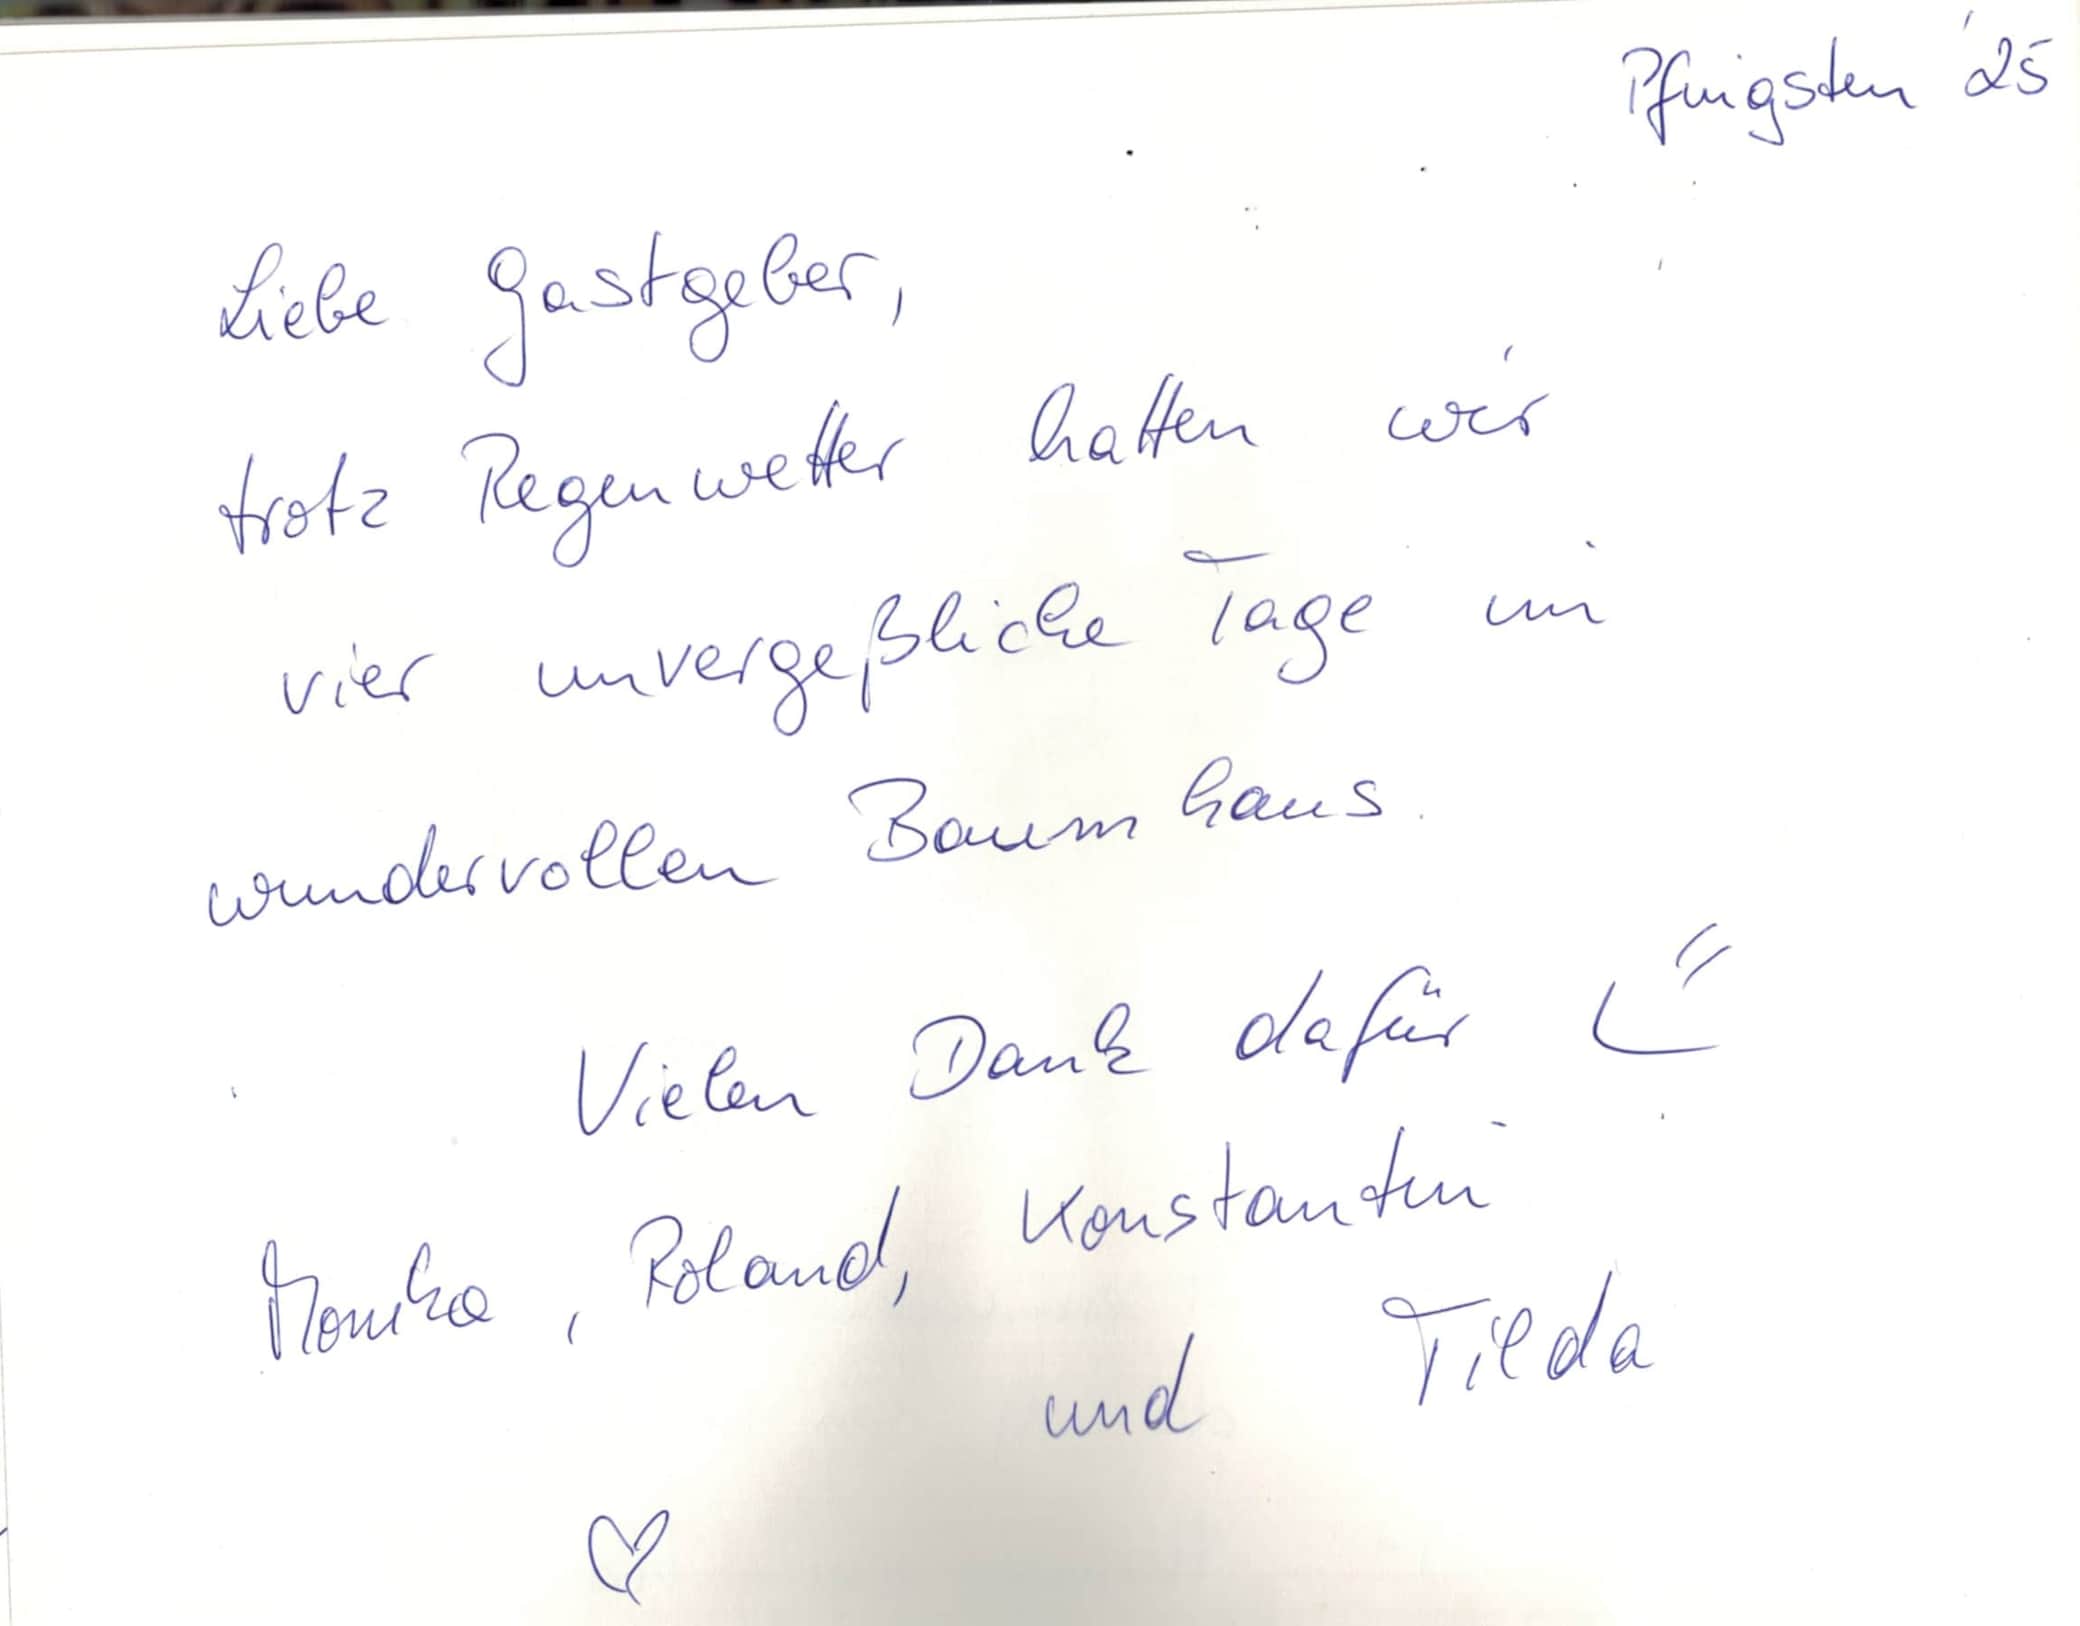 Pfingsten '25
Liebe Gastgeber,
trotz Regenwetter hatten wir
vier unvergeßliche Tage im
wundervollen Baumhaus.
Vielen Dank dafür
Monika, Roland, Konstantin
und Tilda